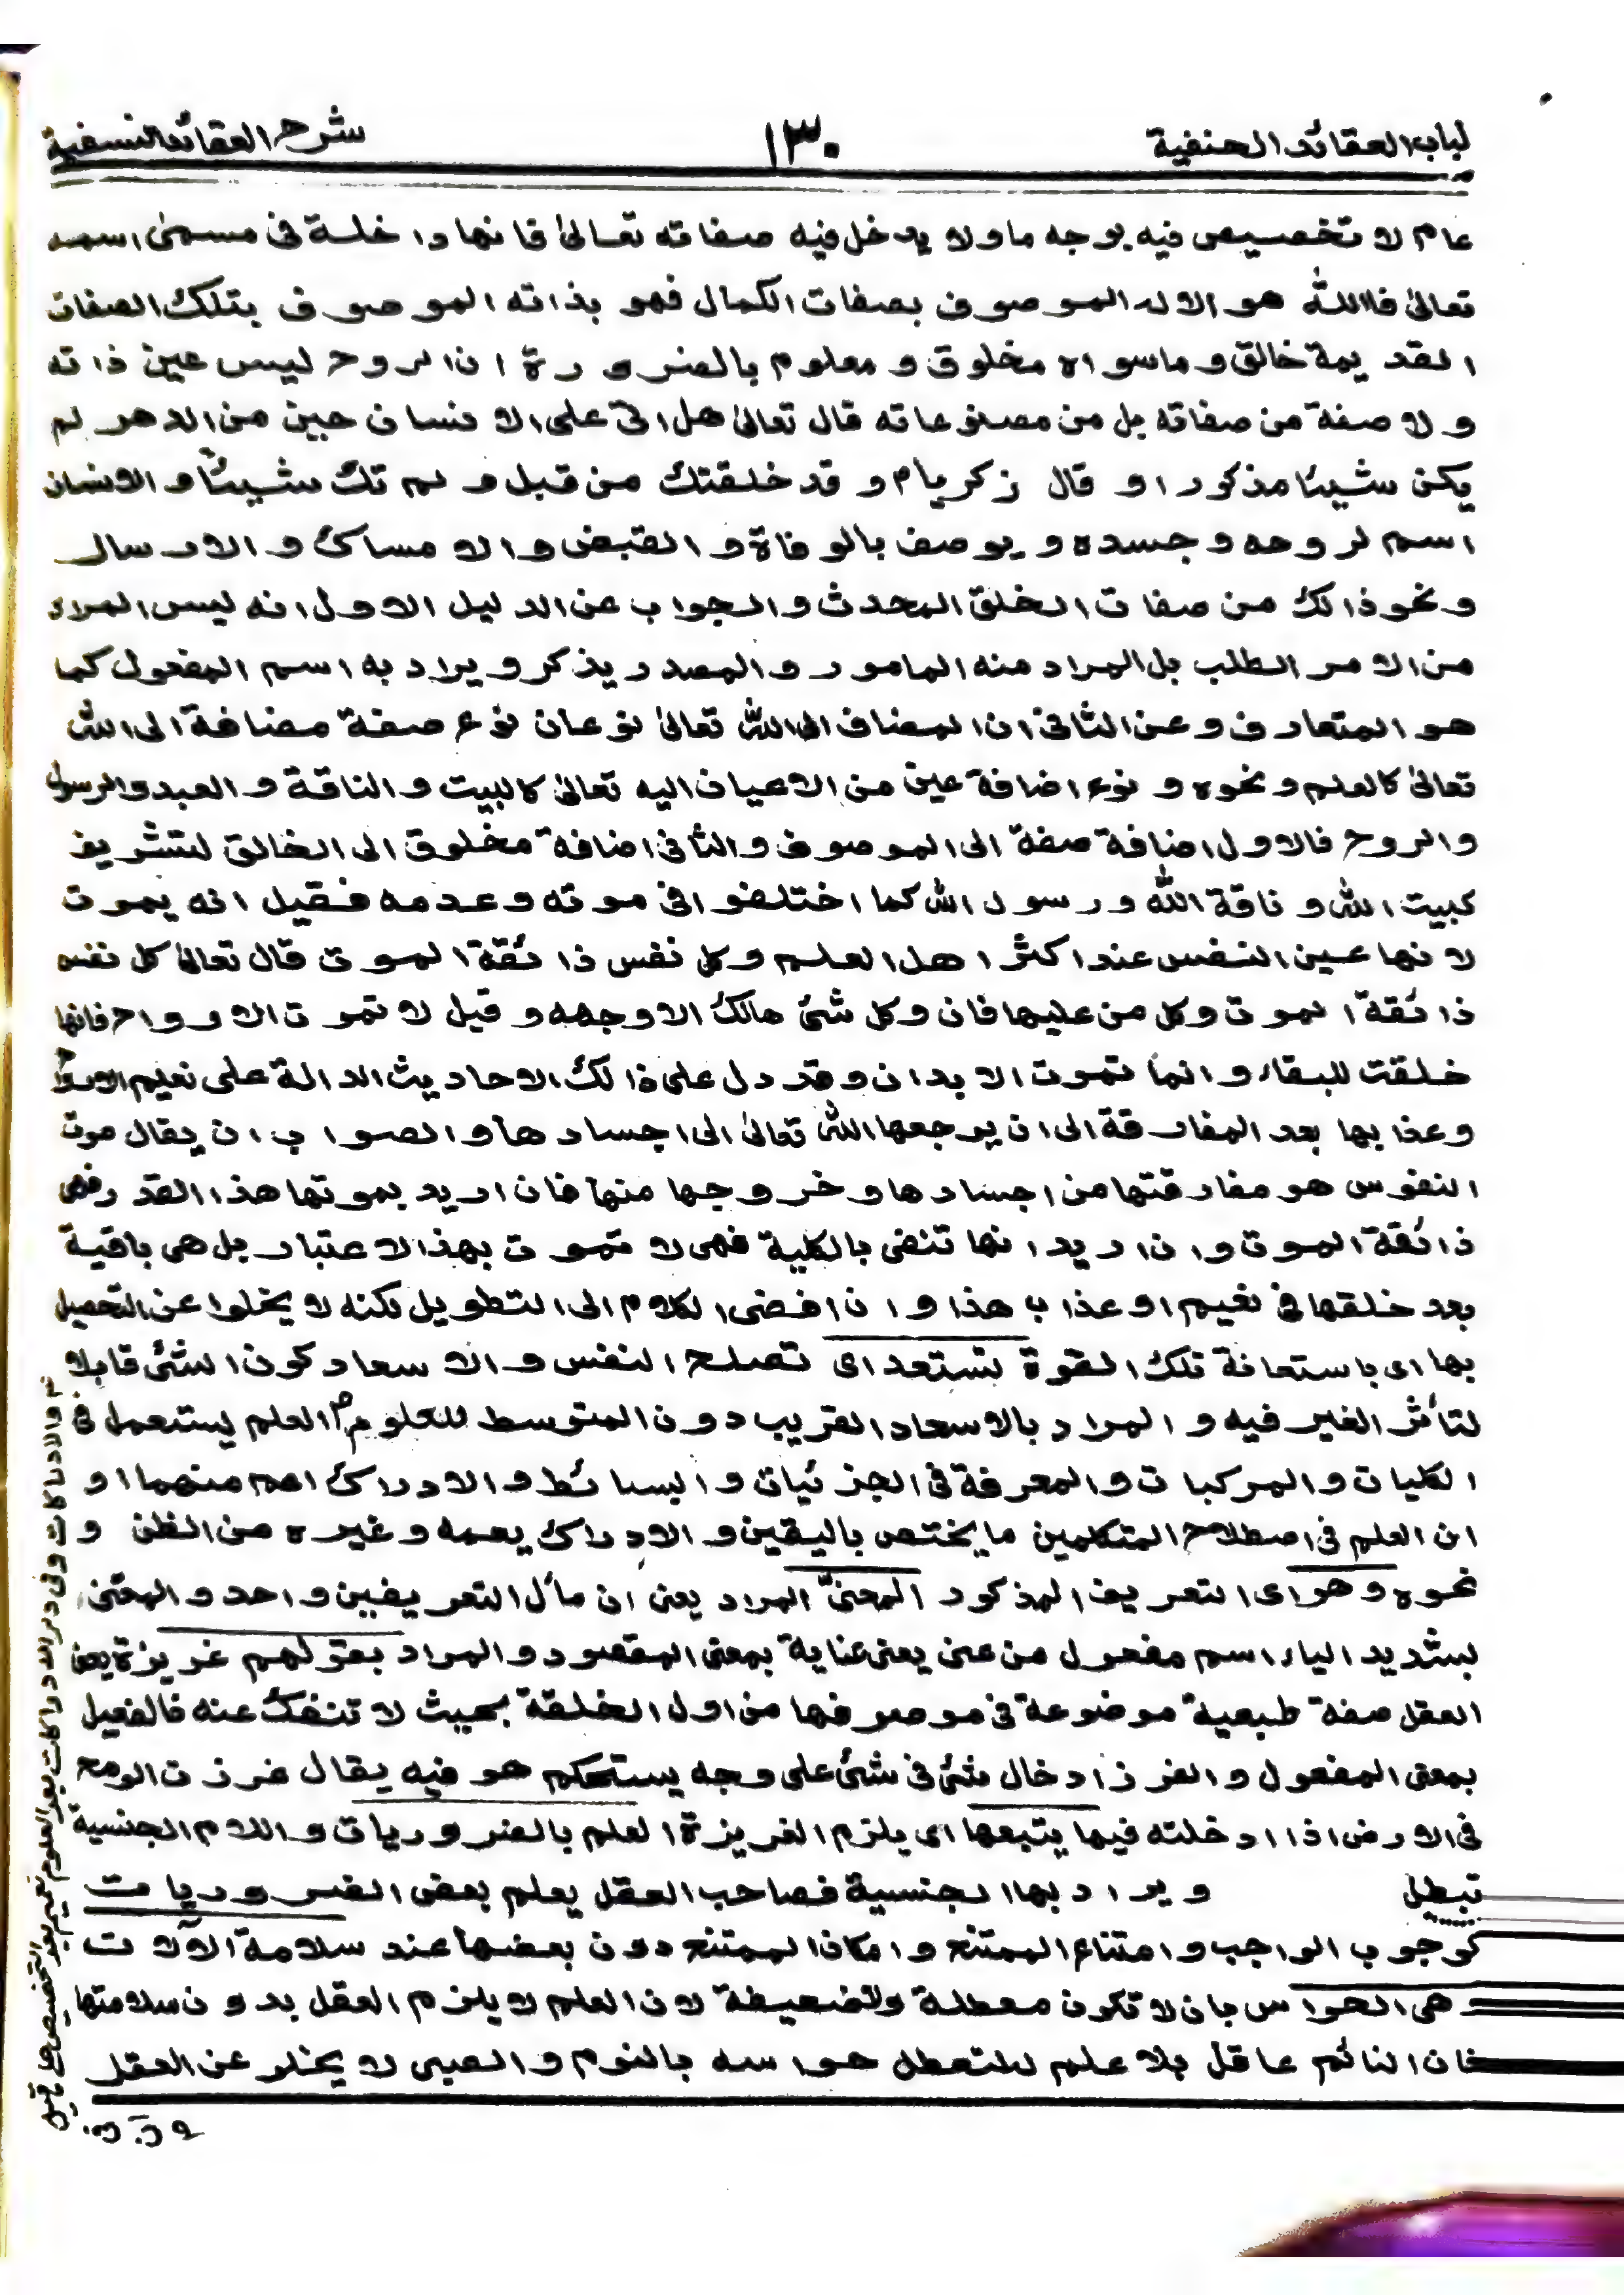 لباب العقائد الحنفية
١٣٠
شرح العقائد النسفية
عام لا تخصيص فيه بوجه ما ولا يدخل فيه صفاته تعالىٰ فانها داخلة فى مسمىٰ اسمه
تعالىٰ فالله هو الاله الموصوف بصفات الكمال فهو بذاته الموصوف بتلك الصفات
القديمة خالق و ماسواه مخلوق و معلوم بالضرورة ان الروح ليس عين ذاته
ولا صفة من صفاته بل من مصنوعاته قال تعالىٰ هل اتىٰ على الانسان حين من الدهر لم
يكن شيئا مذكورا و قال زكريام و قد خلقتك من قبل و لم تك شيئًا و الانسان
اسم لروحه و جسده و يوصف بالوفاة و القبض و الامساك و الارسال
و نحو ذالك من صفات الخلق المحدث و الجواب عن الدليل الاول انه ليس المراد
من الامر الطلب بل المراد منه المامور و المصدر يذكر و يراد به اسم المفعول كما
هو المتعارف و عن الثانى ان المضاف الى الله تعالىٰ نوعان نوع صفة مضافة الى الله
تعالىٰ كالعلم و نحوه و نوع اضافة عين من الاعيان اليه تعالىٰ كالبيت و الناقة و العبد و الرسول
والروح فالاول اضافة صفة الى الموصوف و الثانى اضافة مخلوق الى الخالق لتشريف
كبيت الله و ناقة الله و رسول الله كما اختلفوا فى موته و عدمه فقيل انه يموت
لانها عين النفس عند اكثر اهل العلم و كل نفس ذائقة الموت قال تعالىٰ كل نفس
ذائقة الموت و كل من عليها فان و كل شئ هالك الا وجهه و قيل لا تموت الارواح فانها
خلقت للبقاء و انما تموت الابدان و قد دل على ذالك الاحاديث الدالة على نعيم الارواح
و عذابها بعد المفارقة الى ان يرجعها الله تعالىٰ الى اجسادها و الصواب ان يقال موت
النفوس هو مفارقتها من اجسادها و خروجها منها فان اريد بموتها هذا القدر فهى
ذائقة الموت و ان اريد انها تنفى بالكلية فهى لا تموت بهذا الاعتبار بل هى باقية
بعد خلقها فى نغيم او عذاب هذا و ان افضى الكلام الى التطويل لكنه لا يخلوا عن التحصيل
بها اى باستعانة تلك القوة تستعد اى تصلح النفس و الاسعاد كون الشئ قابلا
لتأثر الغير فيه و المراد بالاسعاد القريب دون المتوسط للعلوم العلم يستعمل فى
الكليات و المركبات و المعرفة فى الجزئيات و البسائط و الادراك اعم منهما او
ان العلم فى اصطلاح المتكلمين ما يختص باليقين و الادراك يعمه و غيره من الظن و
نحوه و هو اى التعريف المذكور المعنىّ المراد يعنى ان مأل التعريفين واحد و المعنى
بشديد الياء اسم مفعول من عنى يعنى عناية بمعنى المقصود و المراد بقولهم غريزة يعنى
العقل صفة طبعية موضوعة فى موصوفها من اول الخلقة بحيث لا تنفك عنه فالفعيل
بمعنى المفعول و الغرز ادخال شئ فى شئ على وجه يستحكم هو فيه يقال غرزت الرمح
فى الارض اذا ادخلته فيها يتبعها اى يلزم الغريزة العلم بالضروريات و اللام الجنسية
تبطل و يراد بها الجنسية فصاحب العقل يعلم بعض الضروريات
كوجوب الواجب و امتناع الممتنع و امكان الممتنع دون بعضها عند سلامة الآلات
و هى الحواس بان لا تكون معطلة و لا ضعيفة لان العلم لا يلزم العقل بدون سلامتها
فان النائم عاقل بلا علم للتعطل حواسه بالنوم و الصبى لا يخلو عن العقل